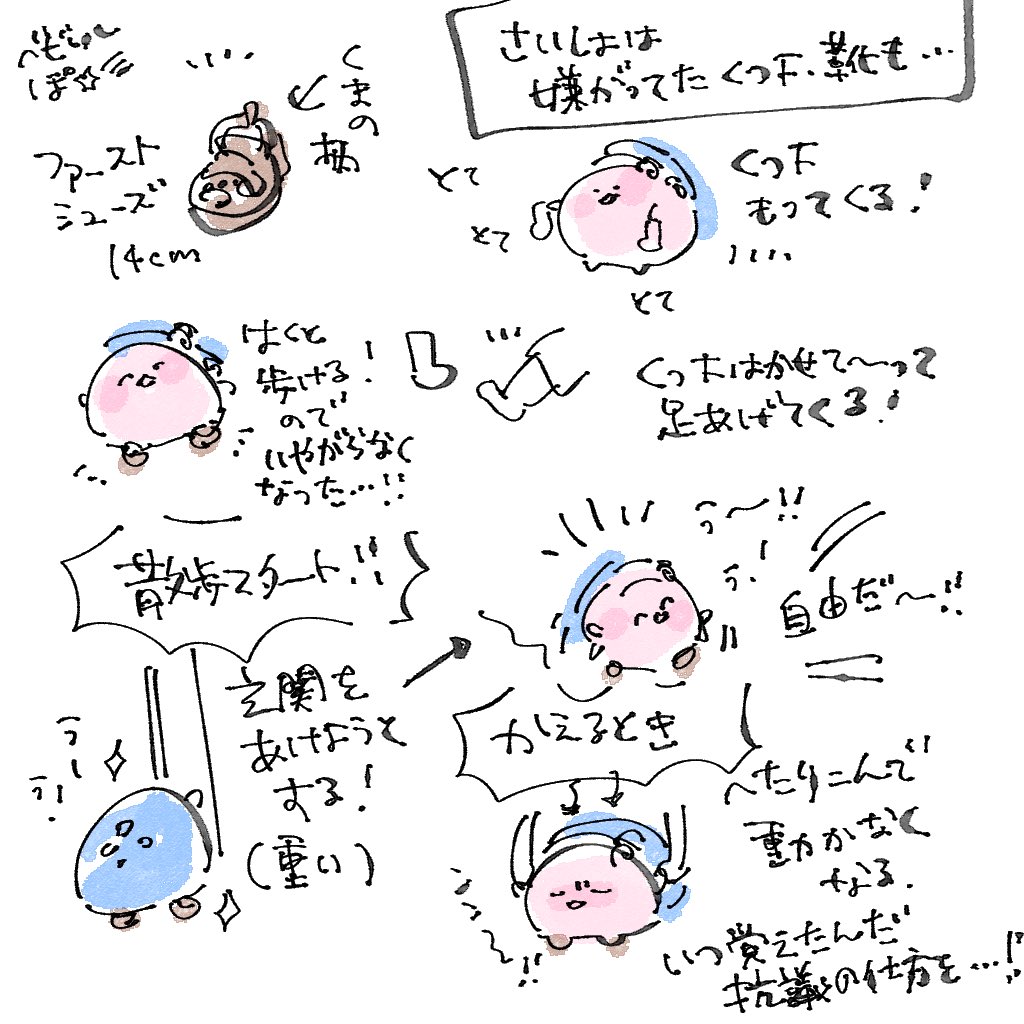 さいしょは
嫌がってた くつ下・靴も…
くまの
柄
ファースト
シューズ
14cm
とて
とて
とて
くつ下
もってくる!
はくと
歩ける!
ので
いやがらなく
なった…!!
くつ下はかせて〜って
足あげてくる!
散歩スタート!!
玄関を
あけようと
する!
(重い)
うー!
う!
う〜!!
う!
自由だ〜!!
かえるとき
へたりこんで
動かなく
なる.
いつ覚えたんだ
抗議の仕方を…!!